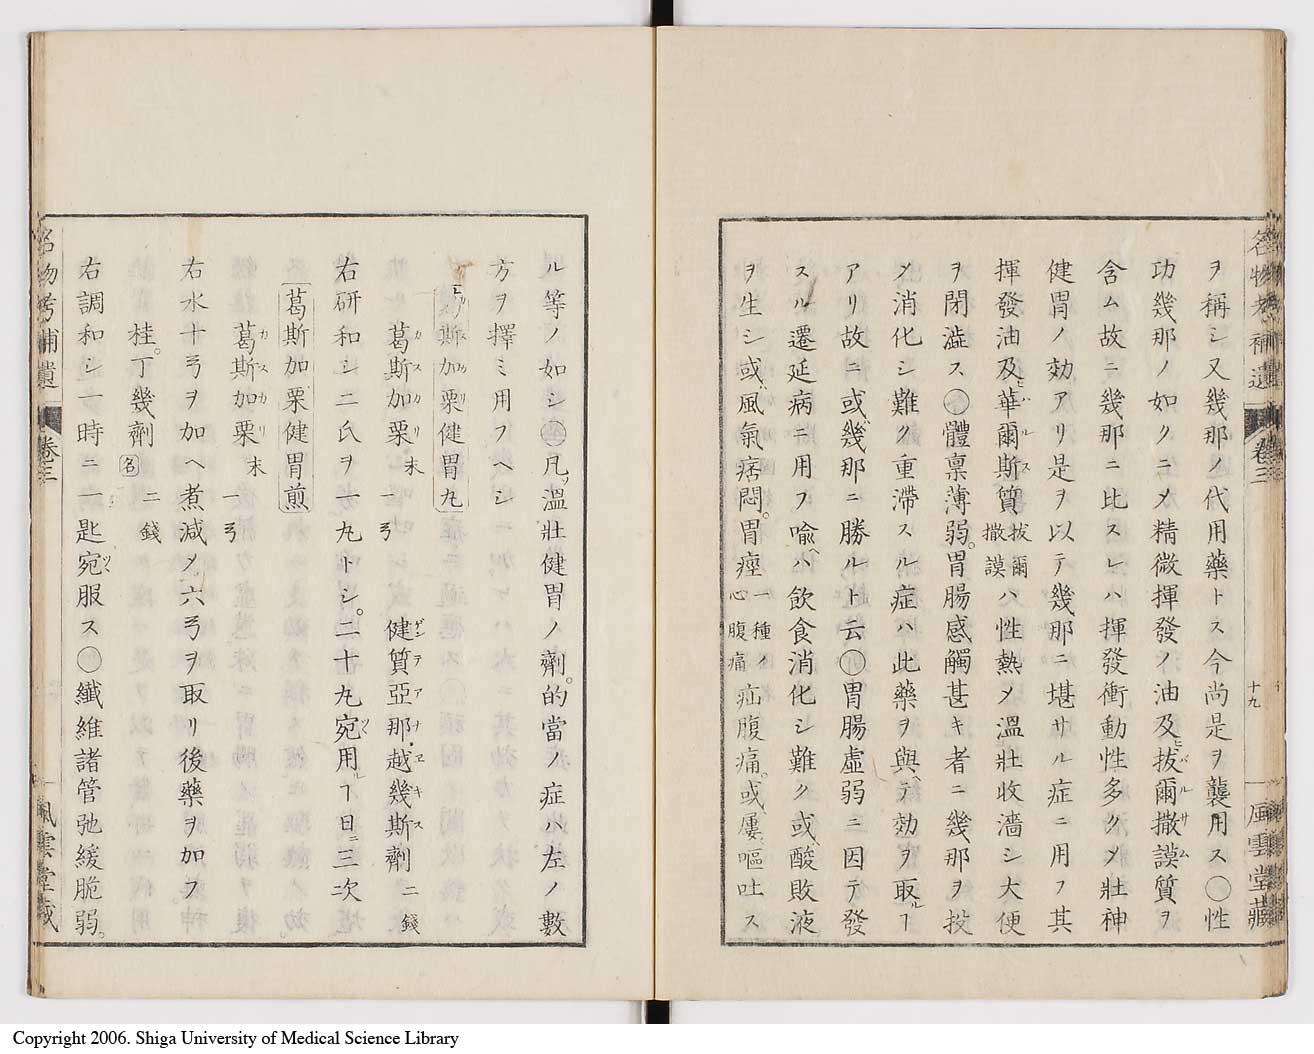 名物考補遺 卷三 十九 風雲堂藏
ヲ稱シ又幾那ノ代用藥トス今尚是ヲ襲用ス〇性
功幾那ノ如クニメ精微揮發ノ油及ヒ拔爾撒謨質ヲ
含ム故ニ幾那ニ比スレハ揮發衝動性多クメ壯神
健胃ノ効アリ是ヲ以テ幾那ニ堪サル症ニ用フ其
揮發油及ヒ華爾斯質拔爾撒謨ハ性熱メ溫壯收濇シ大便
ヲ閉澁ス〇體稟薄弱。胃腸感觸甚キ者ニ幾那ヲ投
メ消化シ難ク重滯スル症ハ此藥ヲ與ヘテ効ヲ取ルヿ
アリ故ニ或ハ幾那ニ勝ルト云〇胃腸虛弱ニ因テ發
スル遷延病ニ用フ喩ヘハ飲食消化シ難ク或ハ酸敗液
ヲ生シ或ハ風氣痞悶。胃痙一種ノ心腹痛疝腹痛。或ハ屢嘔吐ス
ル等ノ如シ〇凡ソ溫壯健胃ノ劑。的當ノ症ハ左ノ數
方ヲ擇ミ用フヘシ
葛斯加栗健胃丸
葛斯加栗末 一弓 健質亞那越幾斯劑 二錢
右研和シ二氏ヲ一丸トシ。二十丸宛用ルヿ日ニ三次
葛斯加栗健胃煎
葛斯加栗末 一弓
右水十弓ヲ加ヘ煮減メ六弓ヲ取リ後藥ヲ加フ
桂。丁幾劑名 二錢
右調和シ一時ニ一匙宛服ス〇纖維諸管弛緩脆弱。
名物考補遺 卷三 風雲堂藏
Copyright 2006. Shiga University of Medical Science Library